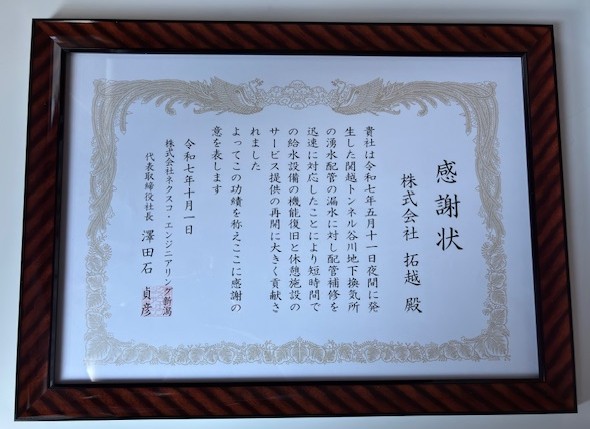 感謝状
株式会社 拓越 殿
貴社は令和七年五月十一日夜間に発
生した関越トンネル谷川地下換気所
の湧水配管の漏水に対し配管補修を
迅速に対応したことにより短時間で
の給水設備の機能復旧と休憩施設の
サービス提供の再開に大きく貢献さ
れました
よってこの功績を称えここに感謝の
意を表します
令和七年十月一日
株式会社ネクスコ・エンジニアリング新潟
代表取締役社長 澤田石 貞彦